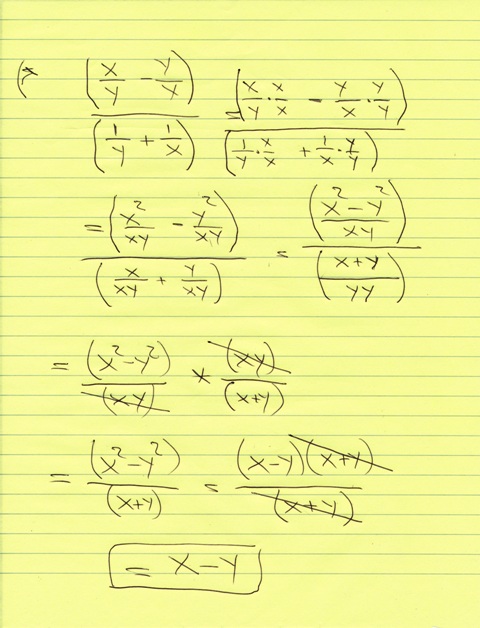 7) (x/y - y/x) / (1/y + 1/x) = (x/y · x/x - y/x · y/y) / (1/y · x/x + 1/x · y/y)
= (x²/xy - y²/xy) / (x/xy + y/xy) = ((x² - y²)/xy) / ((x+y)/yy)
= (x² - y²)/(xy) * (xy)/(x+y)
= (x² - y²)/(x+y) = (x-y)(x+y)/(x+y)
= x - y